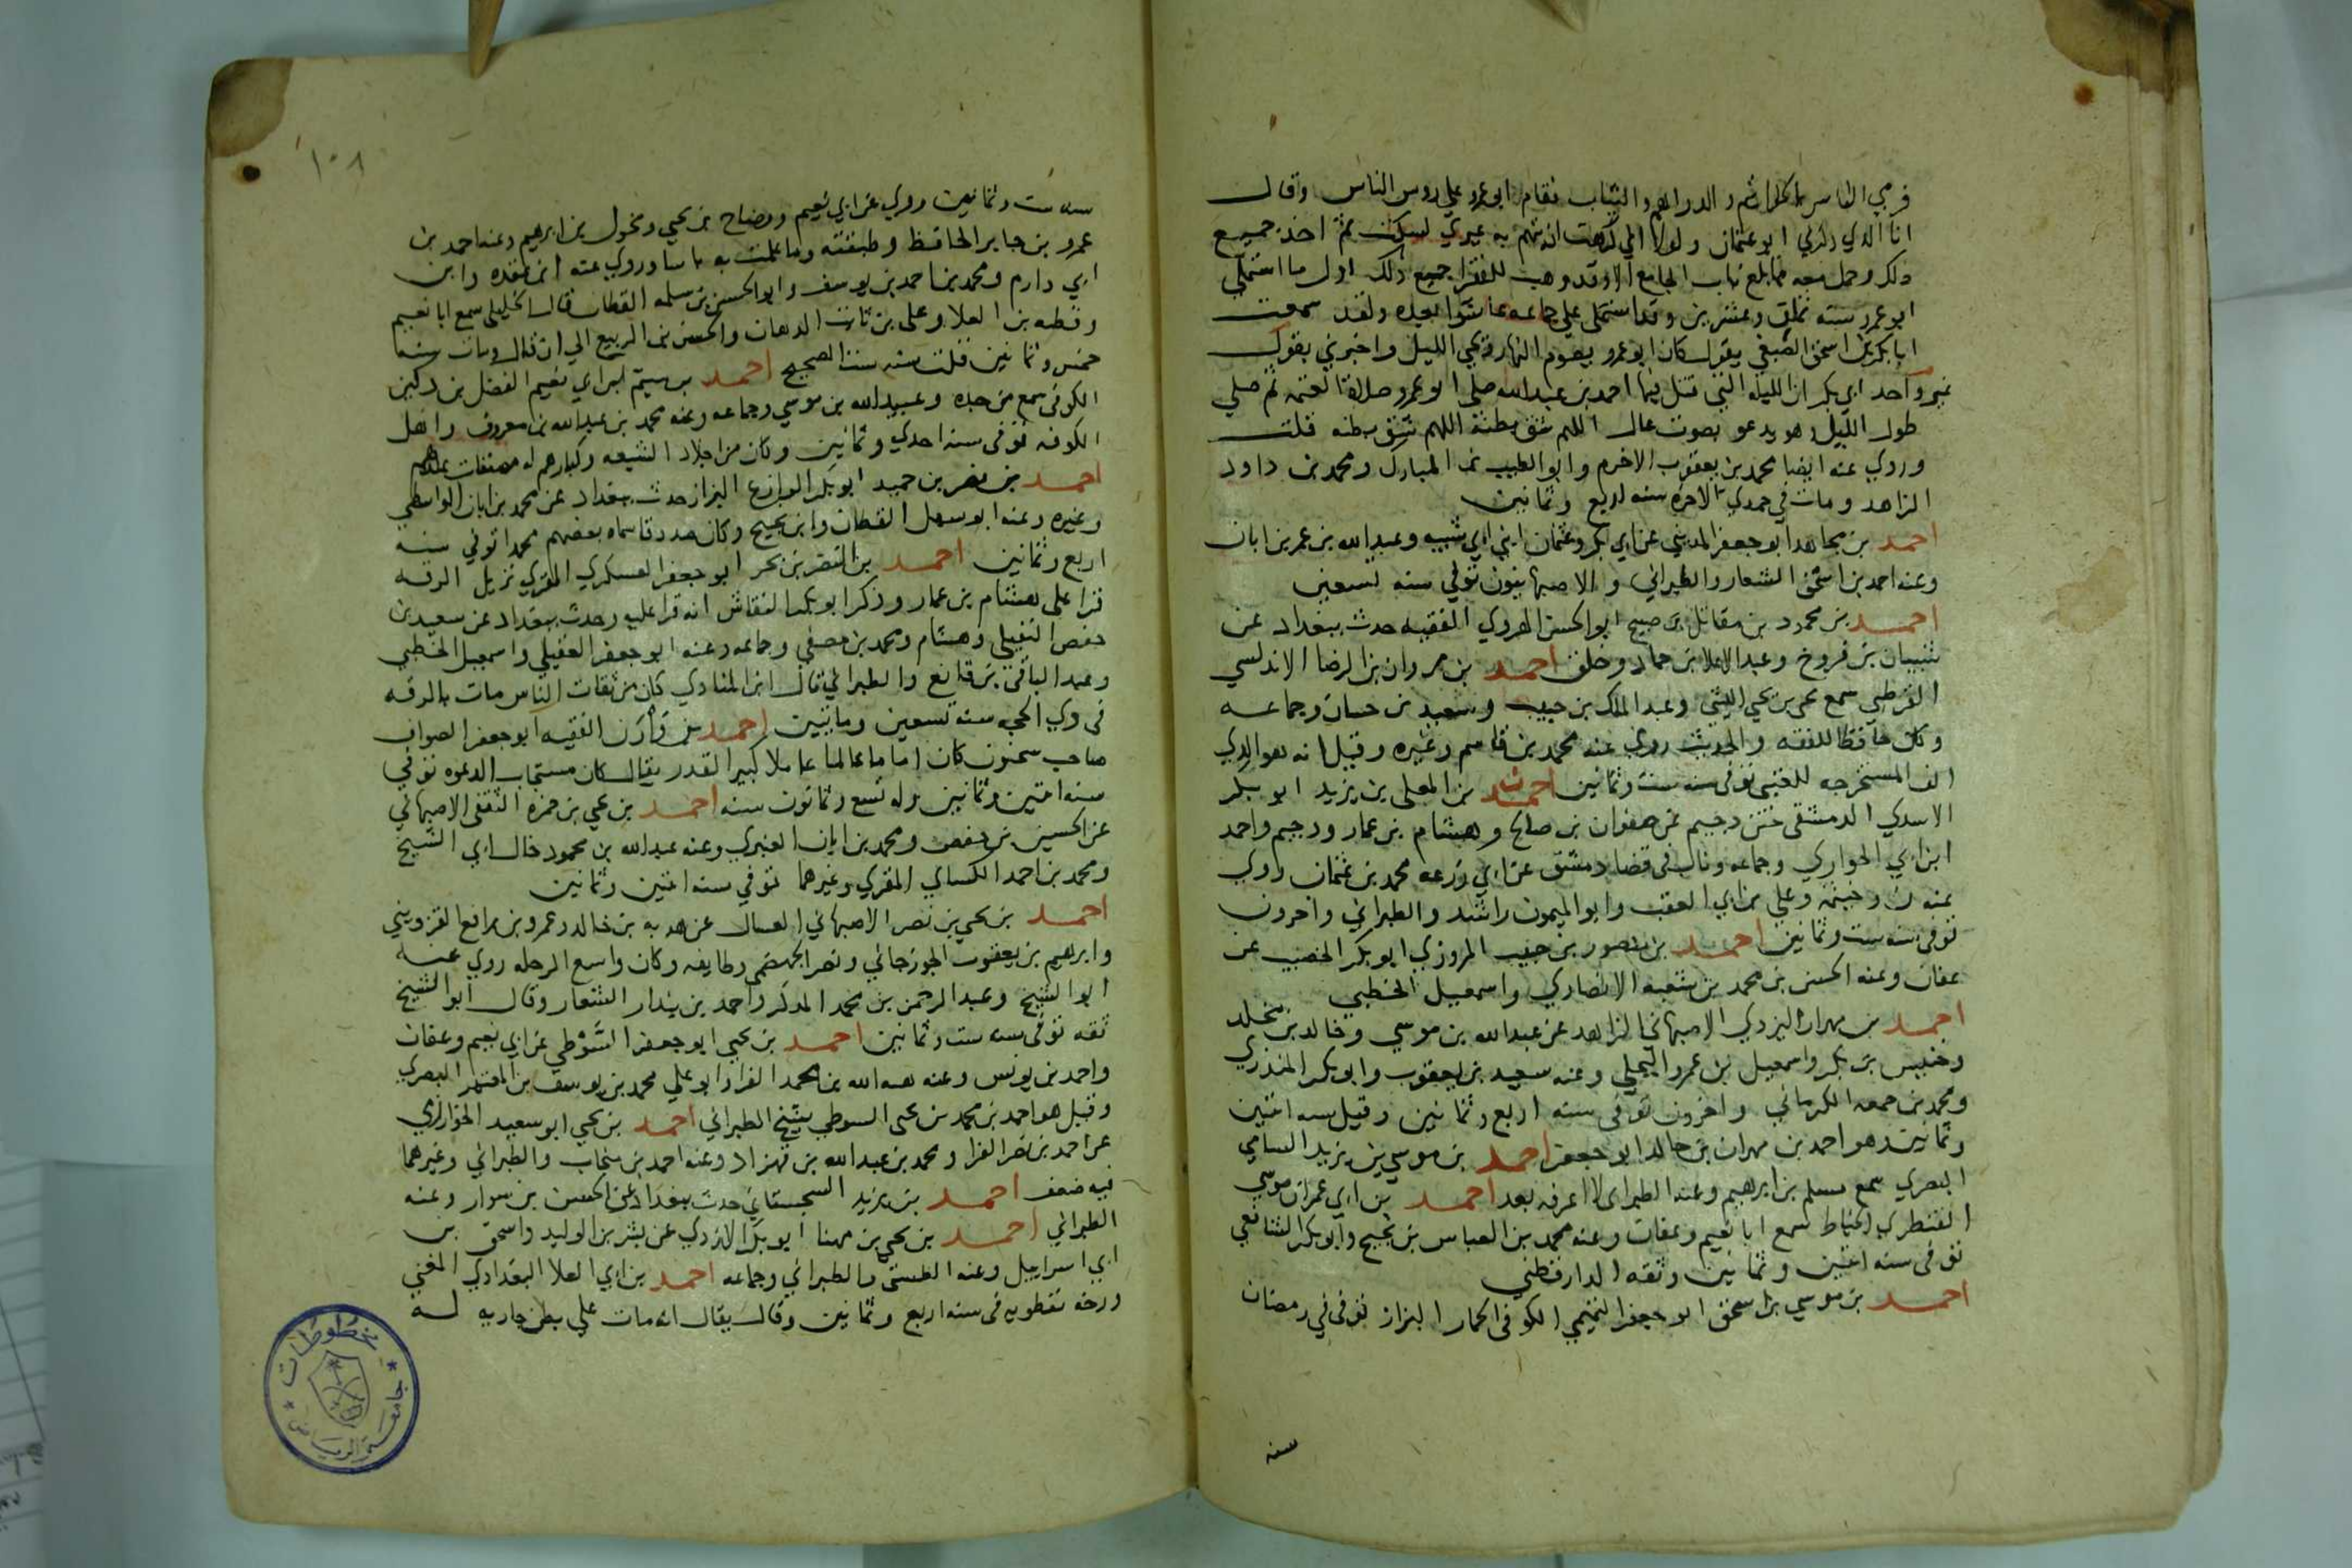 فرمي الناس بالخواتيم والدراهم والثياب فقام ابو عمرو علي روس الناس وقال
انا الذي ذكرني ابو عثمان ولولا اني كرهت ان يتهم به غيري لسكت ثم اخذ جميع
ذلك وحمل معه فما بلغ باب الجامع الا وقد وهب للفقرا جميع ذلك اول ما استملى
ابو عمرو سنه ثمان وعشرين وقد استملى علي جماعه عاشوا بعده ولقد سمعت
ابا بكر بن اسحق الصبغي يقول كان ابو عمرو يصوم النهار ويحي الليل واخبرني يقول
غير واحد ان الليله التي قتل فيها احمد بن عبد الله صلى ابو عمرو صلاة العتمه ثم صلي
طول الليل وهو يدعو بصوت عال اللهم شق بطنه اللهم شق بطنه قلت
وروي عنه ايضا محمد بن يعقوب الاخرم وابو الطيب بن المبارك ومحمد بن داود
الزاهد ومات في جمدي الاخره سنه اربع وثمانين
احمد بن مجاهد ابو جعفر المديني عن ابي بكر وعثمان ابني ابي شيبه وعبد الله بن عمر بن ابان
وعنه احمد بن اسحق الشعار والطبراني والاصبهانيون توفي سنه تسعين
احمد بن محمود بن مقاتل بن صبيح ابو الحسن الهروي الفقيه حدث ببغداد عن
شيبان بن فروخ وعبد الاعلا بن حماد وخلق احمد بن مروان بن الرضا الاندلسي
القرطبي سمع يحي بن يحي الليثي وعبد الملك بن حبيب وسعيد بن حسان وجماعه
وكان حافظا للفقه والحديث روي عنه محمد بن قاسم وغيره وقيل انه هو الذي
الف المستخرجه للعتبي توفي سنه ست وثمانين احمد بن المعلى بن يزيد ابو بكر
الاسدي الدمشقي ختن دحيم عن صفوان بن صالح وهشام بن عمار ودحيم واحمد
ابن ابي الحواري وجماعه وناب في قضا دمشق عن ابي زرعه محمد بن عثمان روي
عنه ن وخيثمه وعلي بن ابي العقب وابو الميمون راشد والطبراني واخرون
توفي سنه ست وثمانين احمد بن منصور بن حبيب المروزي ابو بكر الخصيب عن
عفان وعنه الحسن بن محمد بن شعبه الانصاري واسمعيل الخطبي
احمد بن مهران اليزدي الاصبهاني الزاهد عن عبد الله بن موسي وخالد بن مخلد
وخنيس بن بكر واسمعيل بن عمرو البجلي وعنه سعيد بن يعقوب وابو بكر المنذري
ومحمد بن جمعه الكرماني واخرون توفي سنه اربع وثمانين وقيل سنه اثنتين
وثمانين هو احمد بن مهران بن خالد ابو جعفر احمد بن موسي بن يزيد السامي
البصري سمع مسلم بن ابرهيم وعنه الطبراني لا اعرفه بعد احمد بن ابي عمران موسي
القنطري الخياط سمع ابا نعيم وعفان وعنه محمد بن العباس بن نجيح وابو بكر الشافعي
توفي سنه اثنتين وثمانين وثقه الدارقطني
احمد بن موسي بن اسحق ابو جعفر التميمي الكوفي الحمار البزاز توفي في رمضان
سنه
١٠٨
سنه ست وثمانين روي عن ابي نعيم ووضاح بن يحي ومخول بن ابرهيم وعنه احمد بن
عمرو بن جابر الحافظ وطبقته وما علمت به باسا وروي عنه ابن عقده وابن
ابي دارم ومحمد بن احمد بن يوسف وابو الحسن بن سلمه القطان قال الخليلي سمع ابا نعيم
وقطبه بن العلا وعلى بن ثابت الدهان والحسن بن الربيع الي ان قال ومات سنه
خمس وثمانين قلت سنه ست الصحيح احمد بن ميثم ابن ابي نعيم الفضل بن دكين
الكوفي سمع من جده وعبيد الله بن موسي وجماعه وعنه محمد بن عبد الله بن معروف واهل
الكوفه توفي سنه احدي وثمانين وكان من اجلاد الشيعه وكبارهم له مصنفات
احمد بن نصر بن حميد ابو بكر الوازع البزاز حدث ببغداد عن محمد بن ابان الواسطي
وغيره وعنه ابو سهل القطان وابن نجيح وكان صدوقا سماه بعضهم محمدا توفي سنه
اربع وثمانين احمد بن النضر بن بحر ابو جعفر العسكري المقري نزيل الرقه
قرا على هشام بن عمار وذكر ابو بكر النقاش انه قرا عليه وحدث ببغداد عن سعيد بن
حفص النفيلي وهشام ومحمد بن مصفى وجماعه وعنه ابو جعفر العقيلي واسمعيل الخطبي
وعبد الباقي بن قانع والطبراني قال ابن المنادي كان من ثقات الناس مات بالرقه
في ذي الحجه سنه تسعين وماتيين احمد بن وازن الفقيه ابو جعفر الصواف
صاحب سحنون كان اماما عالما عاملا كبير القدر يقال كان مستجاب الدعوه توفي
سنه اثنتين وثمانين وله تسع وثمانون سنه احمد بن يحي بن حمزه الثقفي الاصبهاني
عن الحسين بن حفص ومحمد بن ابان العنبري وعنه عبد الله بن محمود خال ابي الشيخ
ومحمد بن احمد الكساي المقري وغيرهما توفي سنه اثنتين وثمانين
احمد بن يحي بن نصر الاصبهاني العسال عن هدبه بن خالد وعمرو بن رافع القزويني
وابرهيم بن يعقوب الجوزجاني ونصر الجهضمي وطايفه وكان واسع الرحله روي عنه
ابو الشيخ وعبد الرحمن بن محمد المذكر واحمد بن بندار الشعار وقال ابو الشيخ
ثقه توفي سنه ست وثمانين احمد بن يحيي ابو جعفر السوطي عن ابي نعيم وعفان
واحمد بن يونس وعنه هبه الله بن محمد الفرا وابو علي محمد بن يوسف بن المعتمر البصري
وقيل هو احمد بن محمد بن يحى السوطي شيخ الطبراني احمد بن يحي ابو سعيد الخوارزمي
عن احمد بن نصر الفرا ومحمد بن عبد الله بن قهزاد وعنه احمد بن منجاب والطبراني وغيرهما
فيه ضعف احمد بن يزيد السجستاني حدث ببغداد عن الحسن بن سوار وعنه
الطبراني احمد بن يحي بن مهنا ابو بكر الازدي عن بشر بن الوليد واسحق بن
ابي اسراييل وعنه الطستي والطبراني وجماعه احمد بن ابي العلا البغدادي المغني
ورخه نفطويه في سنه اربع وثمانين وقال يقال انه مات علي بطن جاريه له
مخطوطات
جامعة الرياض